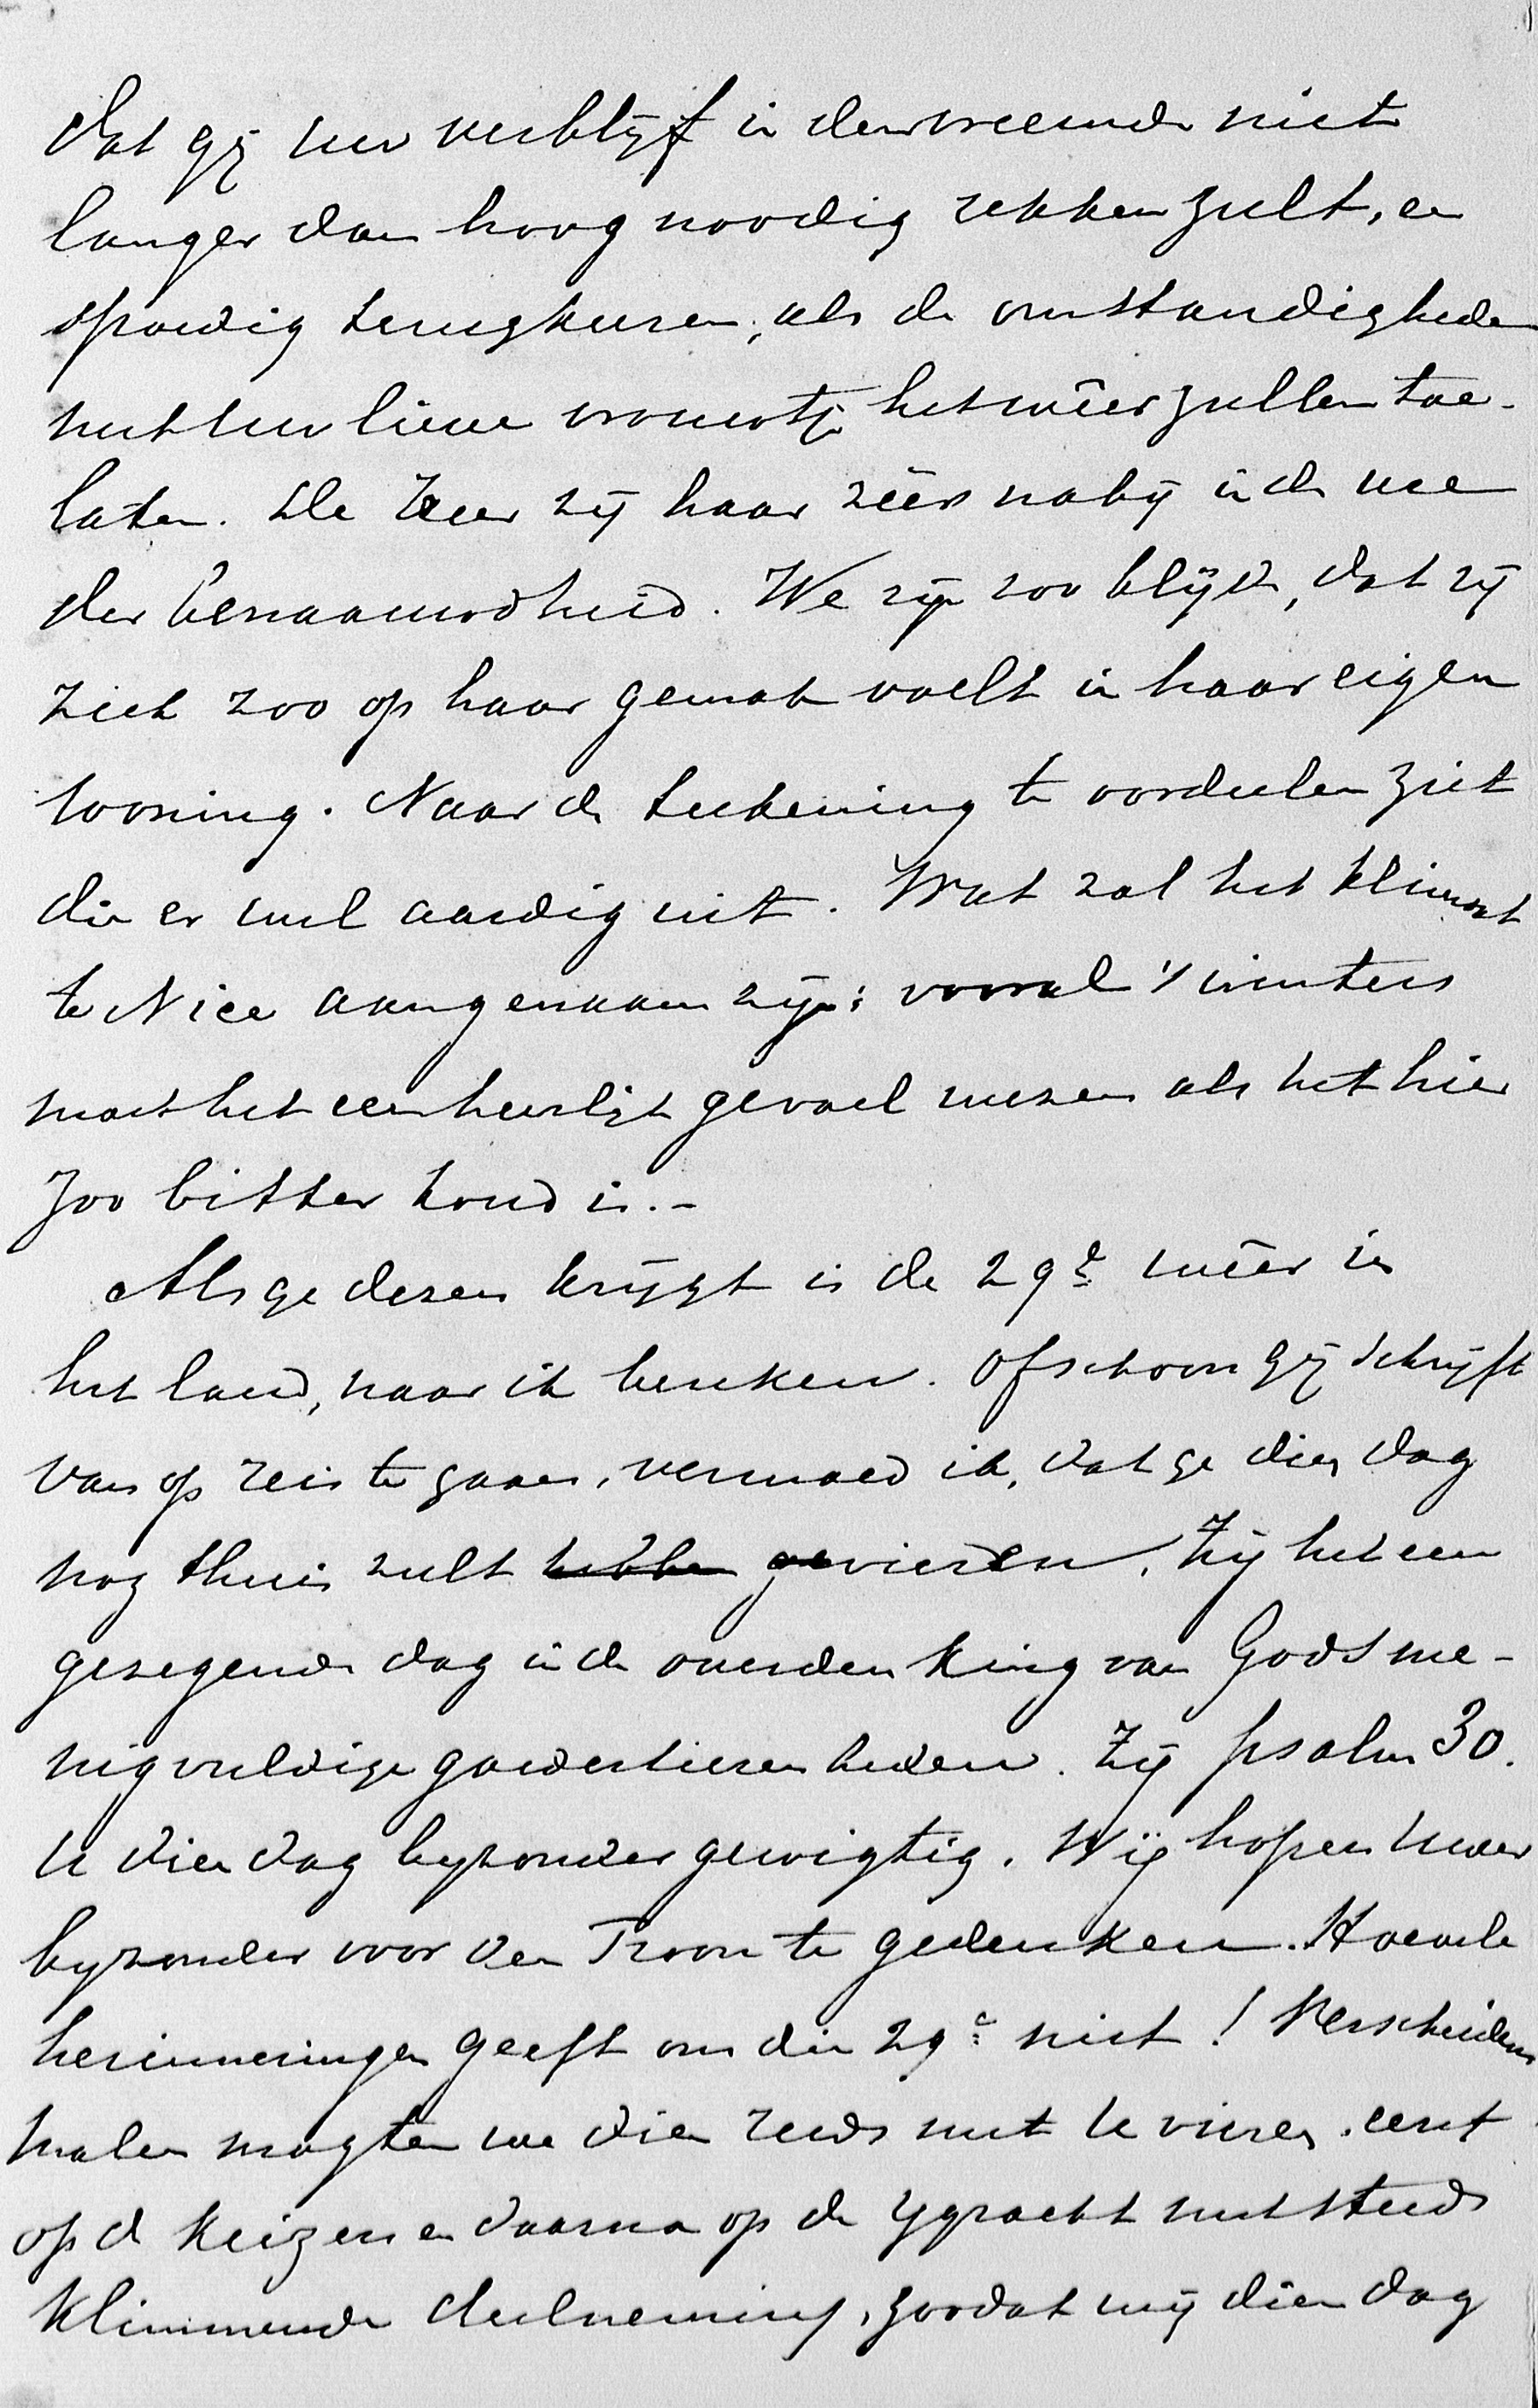 dat gij uw verblijf in den vreemde niet
langer dan hoog noodig rekken zult, en
spoedig terugkeeren, als de omstandigheden
met uw lieve vrouwtje het wêer zullen toe-
laten. De Heer zij haar zéér nabij in de ure
der benaauwdheid. We zijn zoo blijde, dat zij
zich zoo op haar gemak voelt in haar eigen
woning. Naar de teekening te oordeelen ziet
die er wel aardig uit. Wat zal het klimaat
te Nice aangenaam zijn: vooral 's winters
moet het een heerlijk gevoel wezen als het hier
zoo bitter koud is.-
Als ge dezen krijgt is de 29e wêer in
het land, naar ik bereken. Ofschoon gij schrijft
van op reis te gaan, vermoed ik, dat ge dien dag
nog thuis zult hebben gevieren. Zij het een
gezegende dag in de overdenking van Gods me-
nigvuldige goedertierenheden. Zij psalm 30.
U dien dag byzonder gewigtig. Wij hopen Uwer
byzonder voor den Troon te gedenken. Hoevele
herinneringen geeft ons die 29e niet! Verscheidene
malen mogten we dien reeds met U vieren. eerst
op de Keizer en daarna op de Ygracht met steeds
klimmende deelneming, zoodat wij dien dag